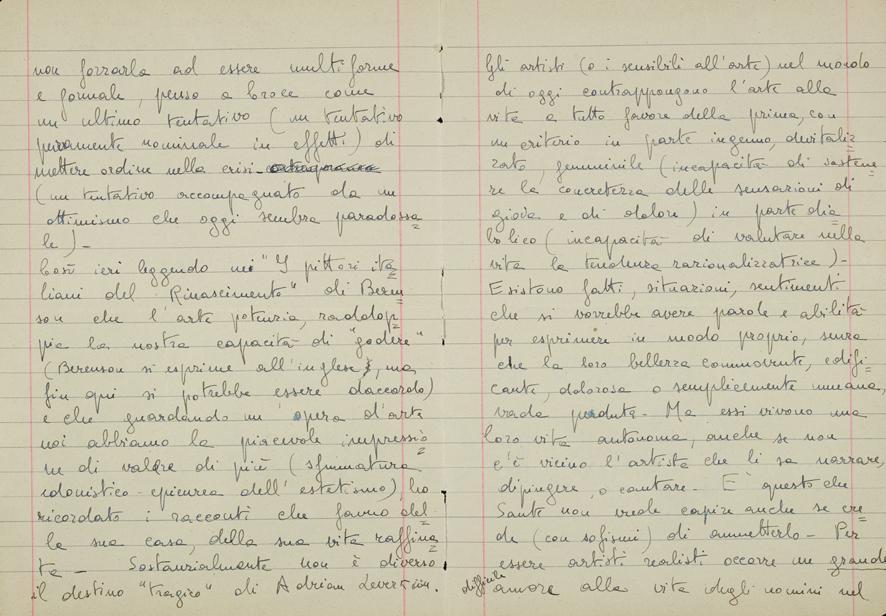 non forzarla ad essere multiforme
e formale, penso a Croce come
un ultimo tentativo (un tentativo
puramente nominale in effetti) di
mettere ordine nella crisi
(un tentativo accompagnato da un
ottimismo che oggi sembra paradossa
le) -
Così ieri leggendo nei "I pittori ita
liani del Rinascimento" di Beren
son che l'arte potenzia, raddop
pia la nostra capacità di "godere"
(Berenson si esprime all'inglese, ma
fin qui si potrebbe essere daccordo)
e che guardando un'opera d'arte
noi abbiamo la piacevole impressio
ne di valere di più (sfumatura
edonistico-epicurea dell'estetismo), ho
ricordato i racconti che fanno del
la sua casa, della sua vita raffina
ta - Sostanzialmente non è diverso
il destino "tragico" di Adrian
Gli artisti (o i sensibili all'arte) nel mondo
di oggi contrappongono l'arte alla
vita a tutto favore della prima, con
un criterio in parte ingenuo, devitaliz
zato, femminile (incapacità di sostene
re la concretezza delle sensazioni di
gioia e di dolore) in parte dia
bolico (incapacità di valutare nella
vita la tendenza razionalizzatrice) -
Esistono fatti, situazioni, sentimenti
che si vorrebbe avere parole e abilità
per esprimere in modo proprio, senza
che la loro bellezza commovente, edifi
cante, dolorosa o semplicemente umana,
vada perduta - Ma essi vivono una
loro vita autonoma, anche se non
c'è vicino l'artista che li sa narrare,
dipingere, o cantare - E' questo che
Sante non vuole capire anche se cre
de (con sofismi) di ammetterlo - Per
essere artisti realisti occorre un grande
difficile amore alla vita degli uomini nel